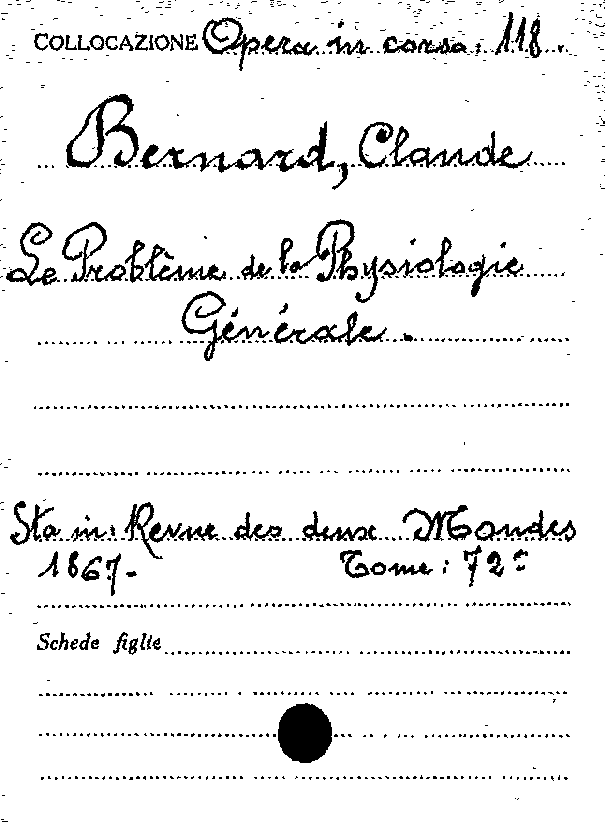 COLLOCAZIONE Opera in corso. 118.
Bernard, Claude
Le Problème de la Physiologie
Générale.
Sta in: Revue des deux Mondes
1867- Tome: 72º
Schede figlie